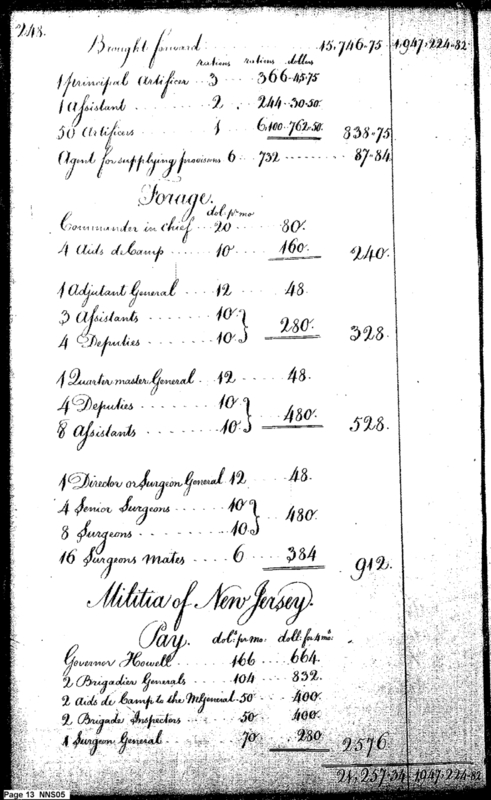 248.
Brought forward 15,746-75 1,947,224-82
rations rations dollars
1 principal Artificer 3 366-45-75
1 Assistant 2 244-30-50
50 Artificers 1 6,100-762-50 838-75
Agent for supplying provisions 6 732 87-84
Forage.
dol. pr mo
Commander in chief 20 80.
4 Aids de Camp 10 160. 240.
1 Adjutant General 12 48
3 Assistants 10
4 Deputies 10 } 280. 328.
1 Quarter master General 12 48.
4 Deputies 10
8 Assistants 10 } 480. 528.
1 Director or Surgeon General 12 48.
4 Senior Surgeons 10
8 Surgeons 10 } 480.
16 Surgeons Mates 6 384 912.
Militia of New Jersey.
Pay. dols pr mo. doll. for 4 mos
Governor Howell 166 664.
2 Brigadier Generals 104 832.
2 Aids de Camp to the M General 50 400.
2 Brigade Inspectors 50 400.
1 Surgeon General 70 280 2576
21,257-34 1,947,224-82
Page 13 NNS05